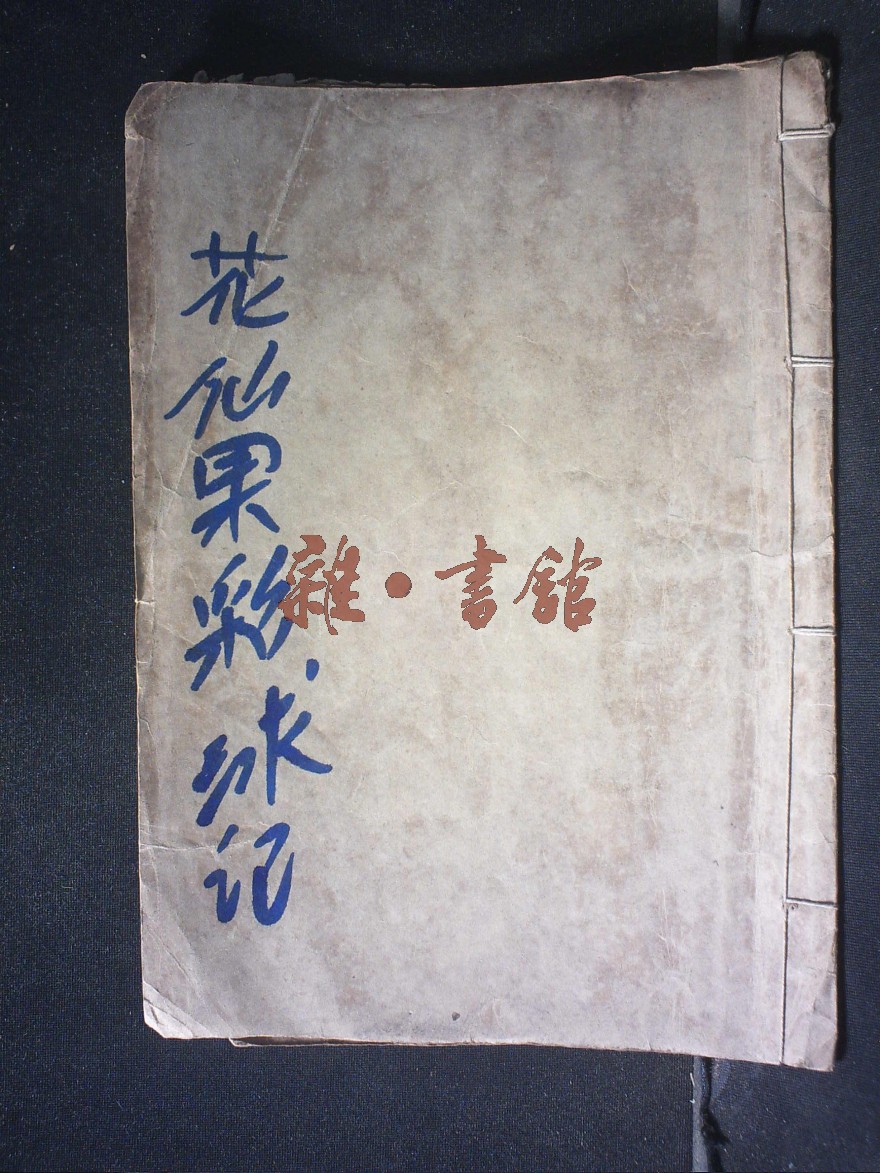 花仙果彩球记
雜·書館